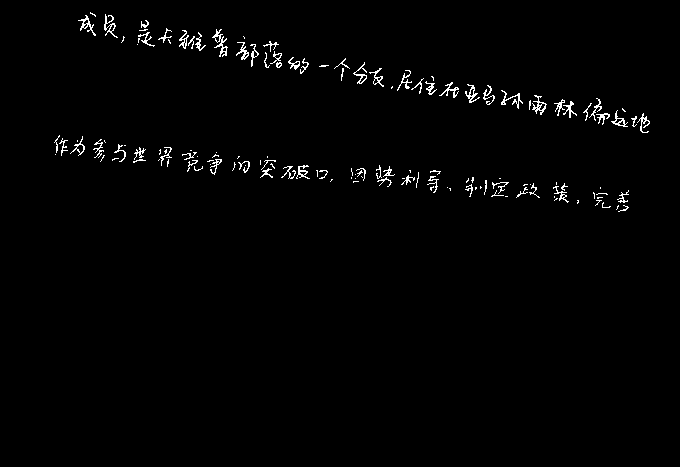 成员,是卡雅普部落的一个分支,居住在亚马孙雨林偏远地
作为参与世界竞争的突破口,因势利导、制定政策,完善